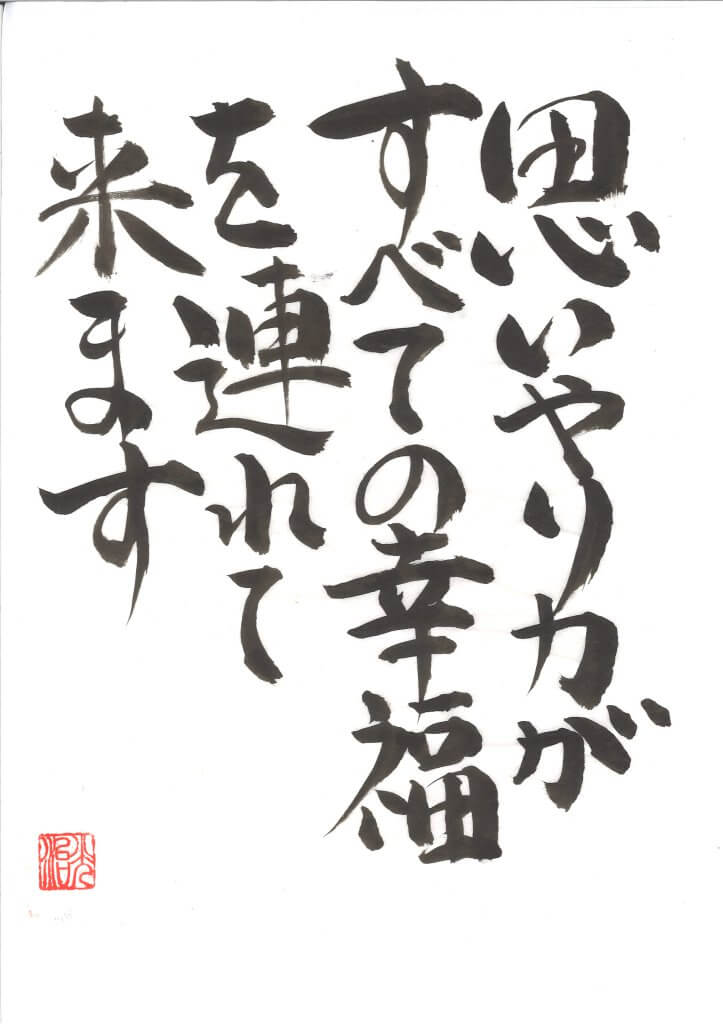 思いやり力が
すべての幸福
を連れて
来ます